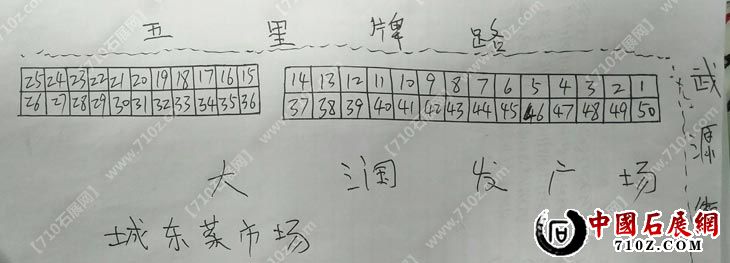 五里牌路
25 24 23 22 21 20 19 18 17 16 15 14 13 12 11 10 9 8 7 6 5 4 3 2 1
26 27 28 29 30 31 32 33 34 35 36 37 38 39 40 41 42 43 44 45 46 47 48 49 50
武源街
大润发广场
城东菜市场
【710z石展网】
www.710z.com
中國石展網
710Z.COM